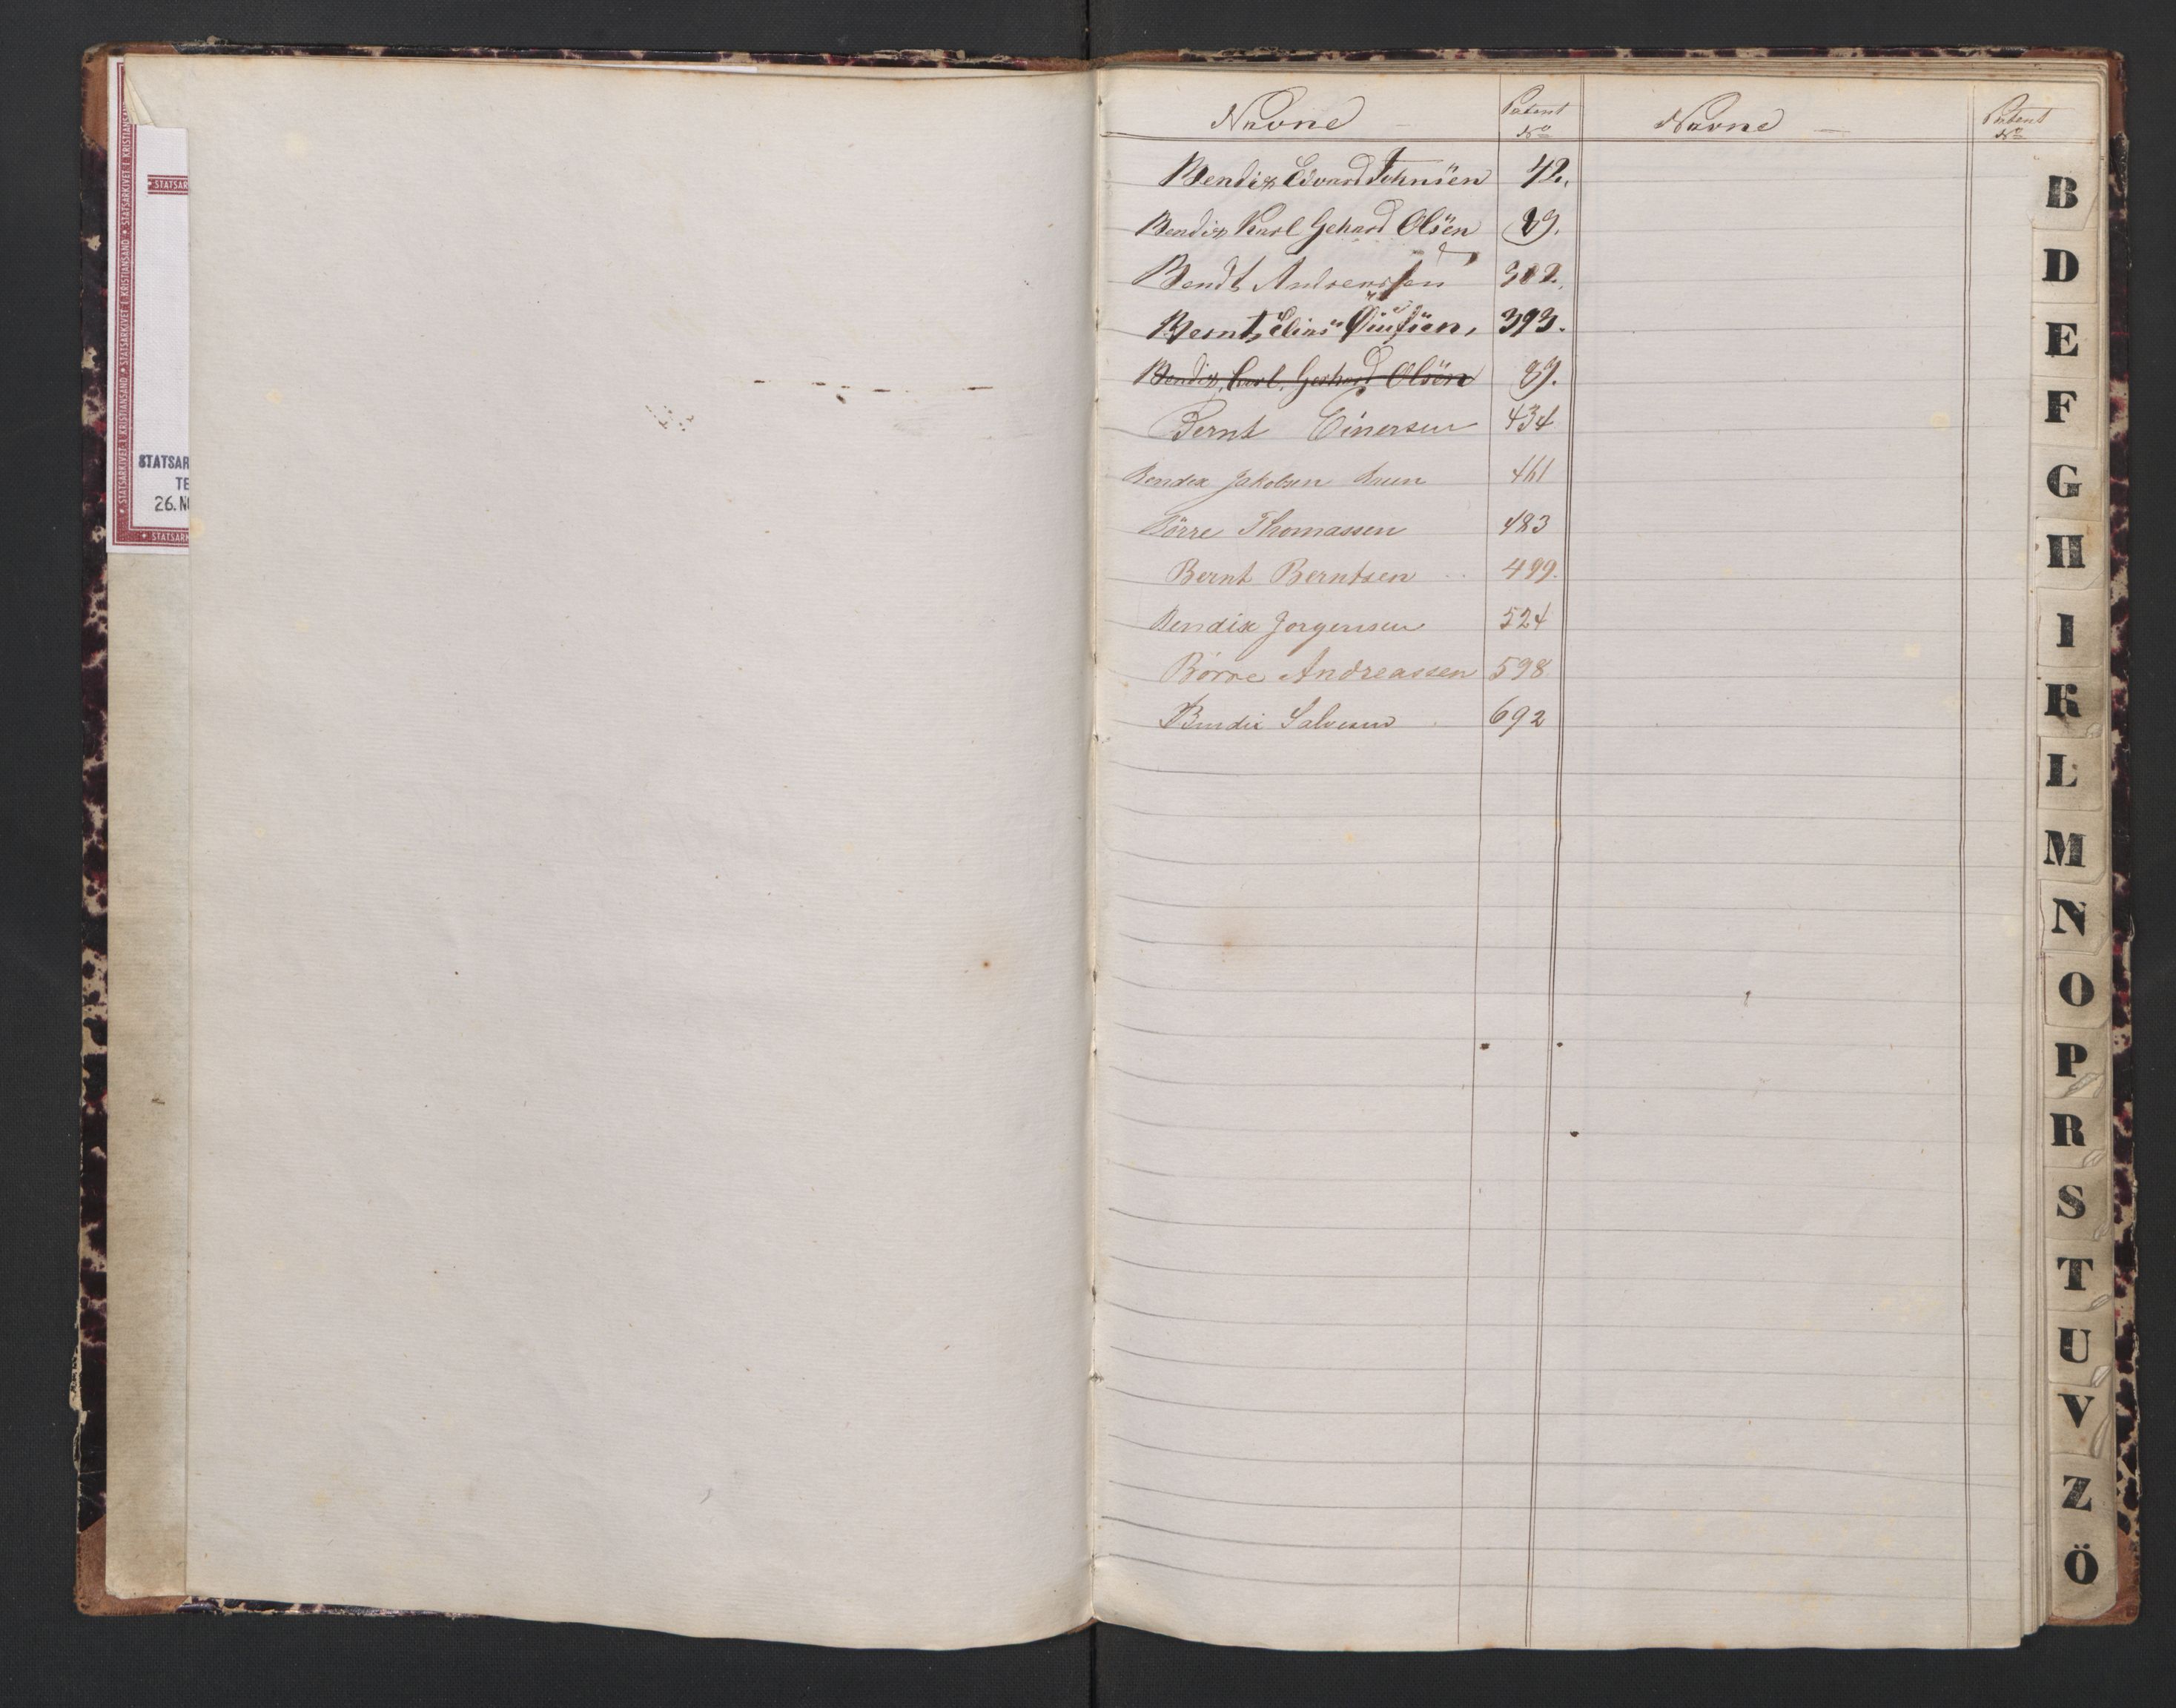 STATSARKIVET I KRISTIANSAND
STATSAR
TE
26. N
Navne Patent No Navne Patent No
Bendix Edvard Johnsen 42.
Bendix Karl Gehard Olsen 89.
Bendt Andreassen 302.
Bernt Elias 393.
Bendix, Carl, Gerhard Olsen 89.
Bernt Einersen 434
Bendix Jakobsen 461
Börre Thomassen 483
Bernt Berntsen 499.
Bendix Jorgensen 524
Börre Andreassen 598
Bendix Salvesen 692
B
D
E
F
G
H
I
K
L
M
N
O
P
R
S
T
U
V
Z
Ö